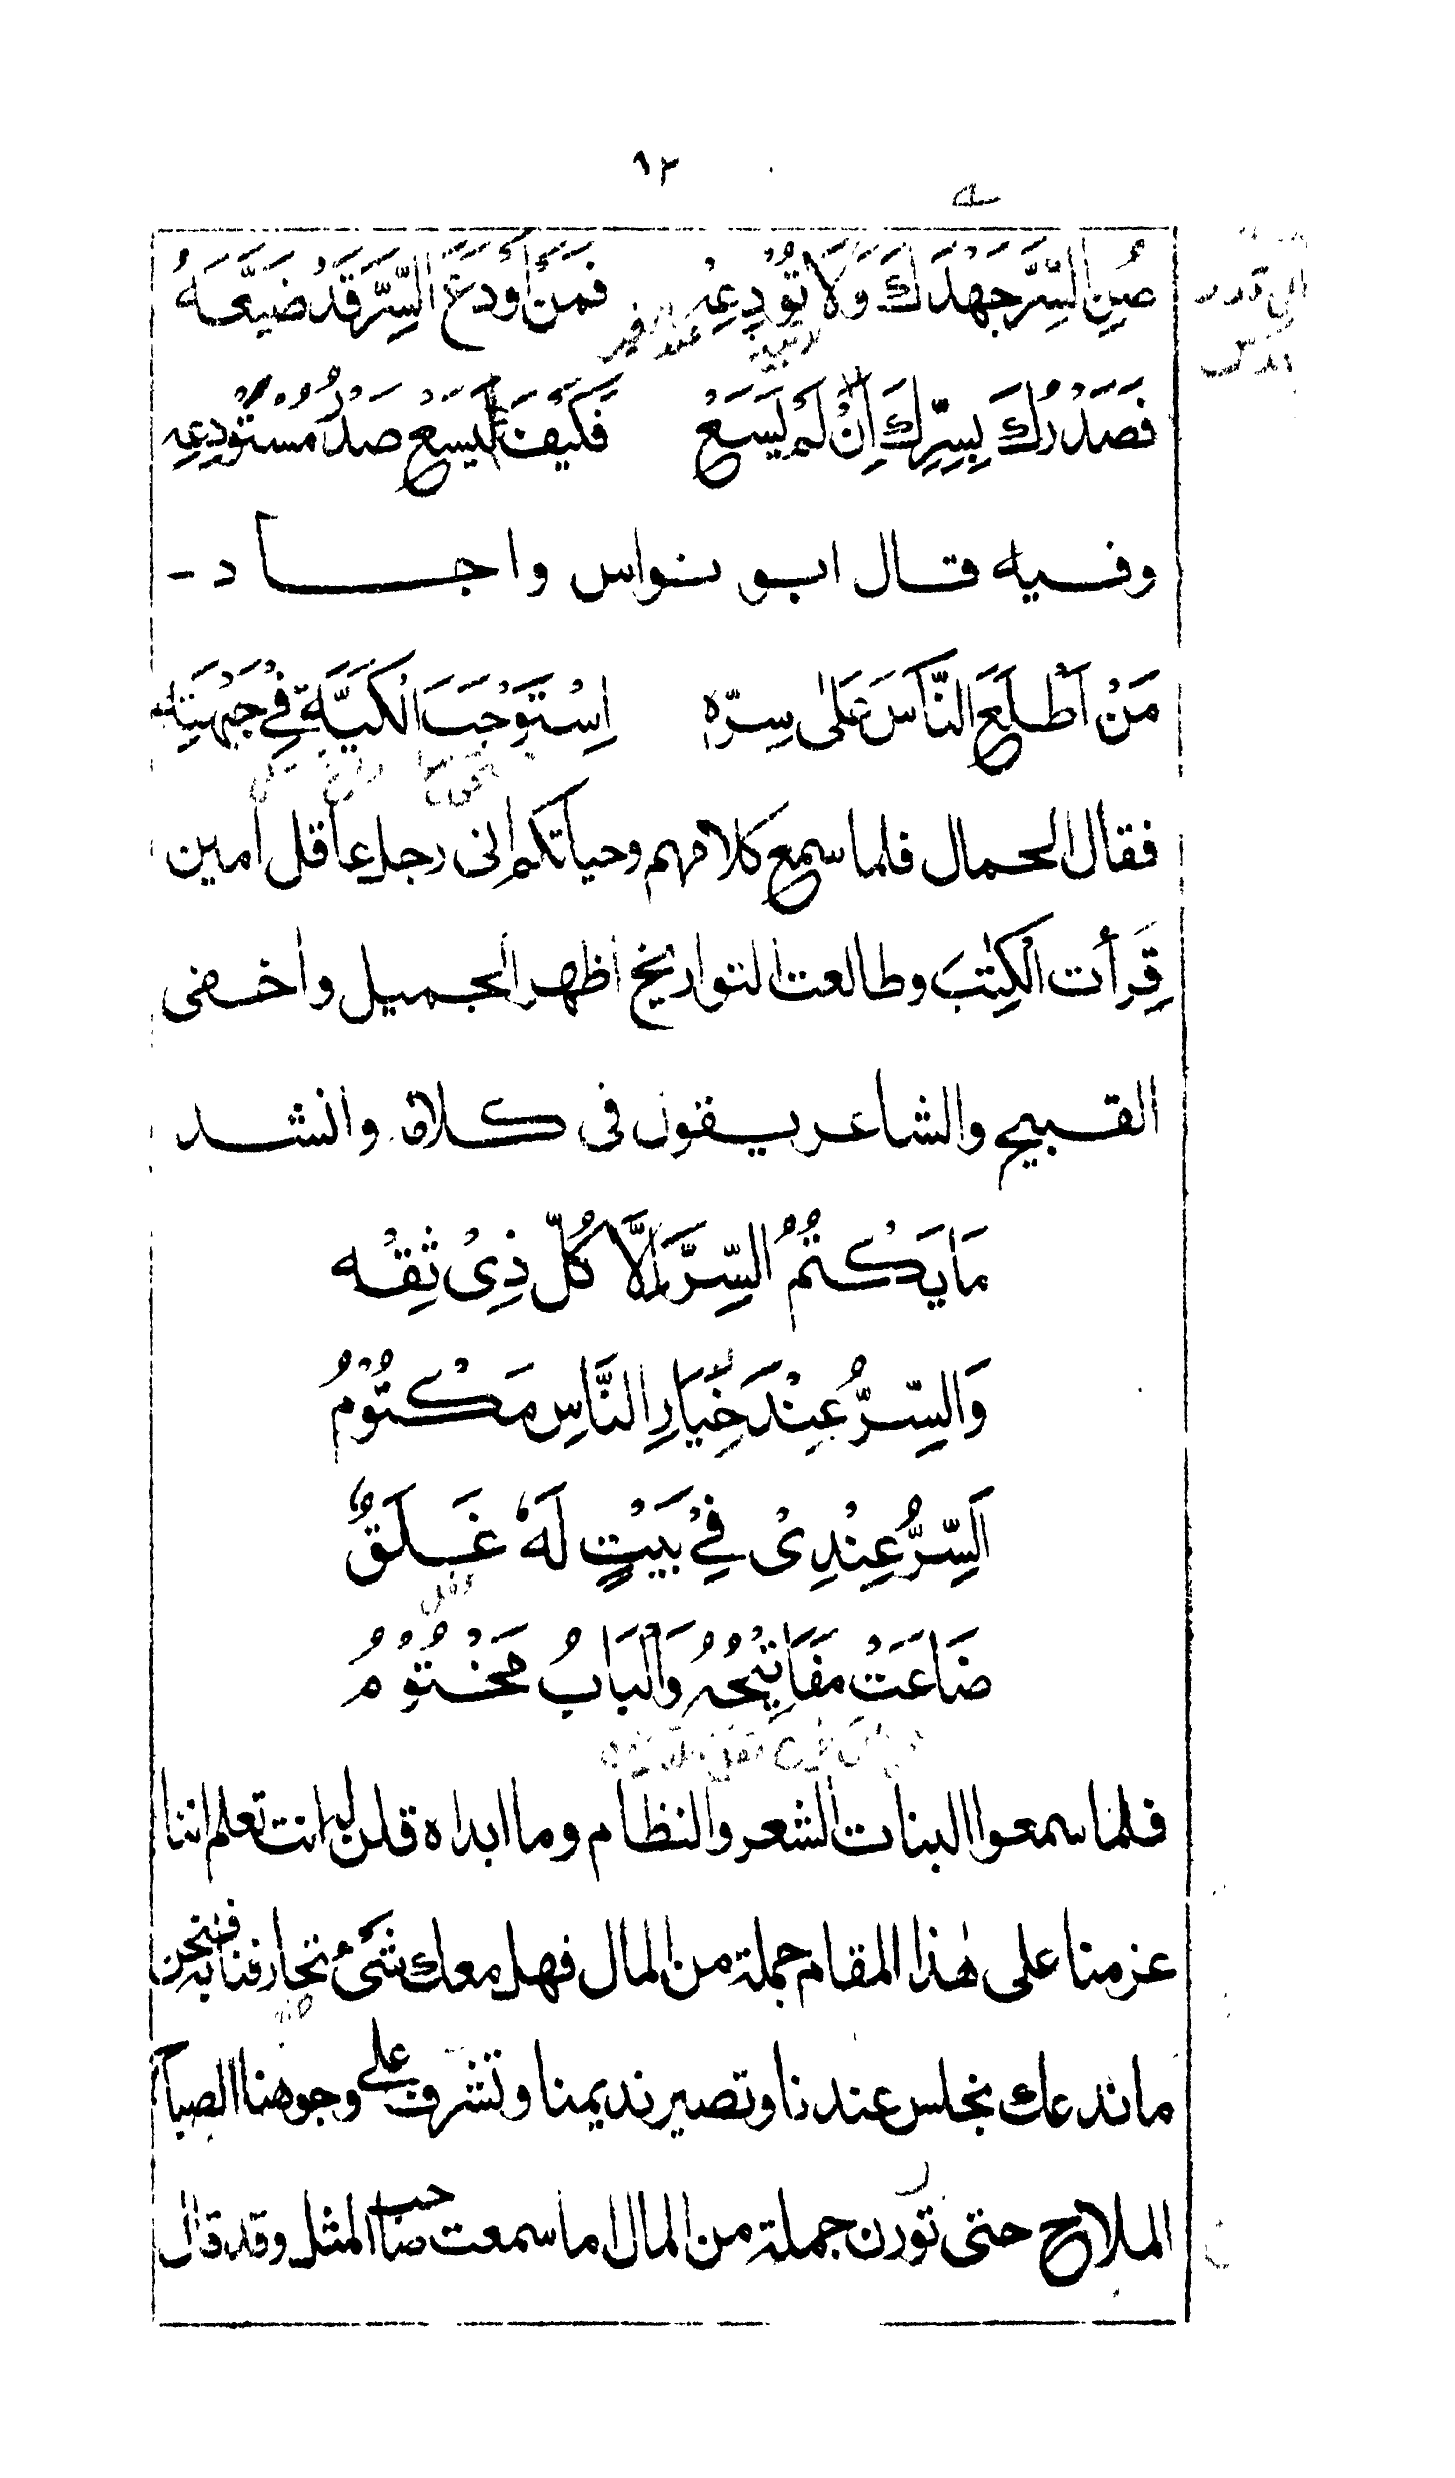 ٩٢
صُنِ السِّرَّ جَهْدَكَ وَلَا تُوْدِعِهِ فَمَنْ أَوْدَعَ السِّرَّ قَدْ ضَيَّعَهُ
فَصَدْرُكَ بِسِرِّكَ اِنْ لَمْ يَسَعْ فَكَيْفَ يَسَعْ صَدْرُ مُسْتَوْدِعِهِ
وفيه قال ابو نواس واجاد -
مَنْ اَطْلَعَ النَّاسَ عَلٰى سِرِّهٖ اِسْتَوْجَبَ الْكَيَّةَ فِيْ جَبْهَتِهِ
فقال الحمال فلما سمع كلامهم وحياتكم انى رجل عاقل امين
قِرَأت الْكِتٰبَ وطالعت التواريخ اظهر الجميل واخفى
القبيح والشاعر يقول فى كلامه وانشد
مَا يَكْتُمُ السِّرَّ اِلَّا كُلُّ ذِىْ ثِقْه
وَالسِّرُّ عِنْدَ خِيَارِ النَّاسِ مَكْتُوْمُ
اَلسِّرُّ عِنْدِىْ فِيْ بَيْتٍ لَهٗ غَلَقٌ
ضَاعَتْ مَفَاتِيْحُهُ وَالْبَابُ مَخْتُوْمُ
فلما سمعوا البنات الشعر والنظام وما ابداه قلن له انت تعلم اننا
عزمنا على هٰذا المقام جملة من المال فهل معك شَىْءٌ تجارفنا به فنحن
ما ندعك تجلس عندنا وتصير نديمنا وتشرف على وجوهنا الصباح
الملاح حتى تورن جملة من المال اما سمعت صاحب المثل وقد قال